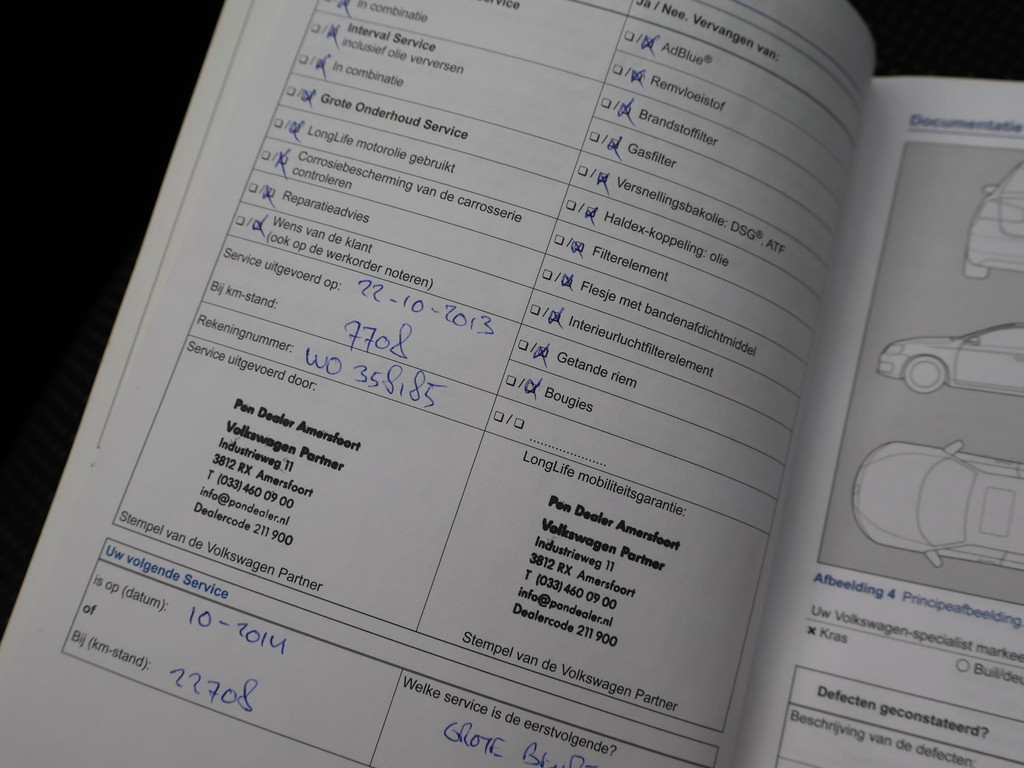 In combinatie
Interval Service
inclusief olie verversen
❏/ In combinatie
❏/❏ Grote Onderhoud Service
❏/❏ LongLife motorolie gebruikt
❏/❏ Corrosiebescherming van de carrosserie
controleren
❏/❏ Reparatieadvies
❏/❏ Wens van de klant
(ook op de werkorder noteren)
Service uitgevoerd op: 22-10-2013
Bij km-stand: 7708
Rekeningnummer: WO 358185
Service uitgevoerd door:
Pon Dealer Amersfoort
Volkswagen Partner
Industrieweg 11
3812 RX Amersfoort
T (033) 460 09 00
info@pondealer.nl
Dealercode 211 900
Stempel van de Volkswagen Partner
Ja / Nee. Vervangen van:
❏/❏ AdBlue®
❏/❏ Remvloeistof
❏/❏ Brandstoffilter
❏/❏ Gasfilter
❏/❏ Versnellingsbakolie: DSG®, ATF
❏/❏ Haldex-koppeling: olie
❏/❏ Filterelement
❏/❏ Flesje met bandenafdichtmiddel
❏/❏ Interieurluchtfilterelement
❏/❏ Getande riem
❏/❏ Bougies
❏/❏ ..................
LongLife mobiliteitsgarantie:
Pon Dealer Amersfoort
Volkswagen Partner
Industrieweg 11
3812 RX Amersfoort
T (033) 460 09 00
info@pondealer.nl
Dealercode 211 900
Stempel van de Volkswagen Partner
Uw volgende Service
is op (datum): 10-2014
of
Bij (km-stand): 22708
Welke service is de eerstvolgende?
GROTE
Documentatie
Afbeelding 4 Principeafbeelding
Uw Volkswagen-specialist
× Kras
Defecten geconstateerd?
Beschrijving van de defecten: